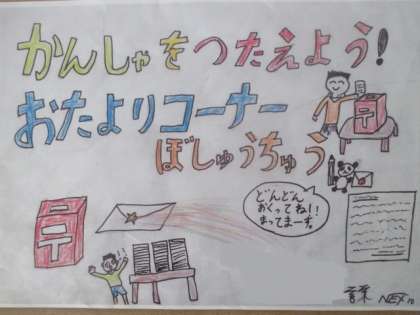 かんしゃをつたえよう!
おたよりコーナー
ぼしゅうちゅう
どんどん
おくってね!!
まってまーす。
〒
〒